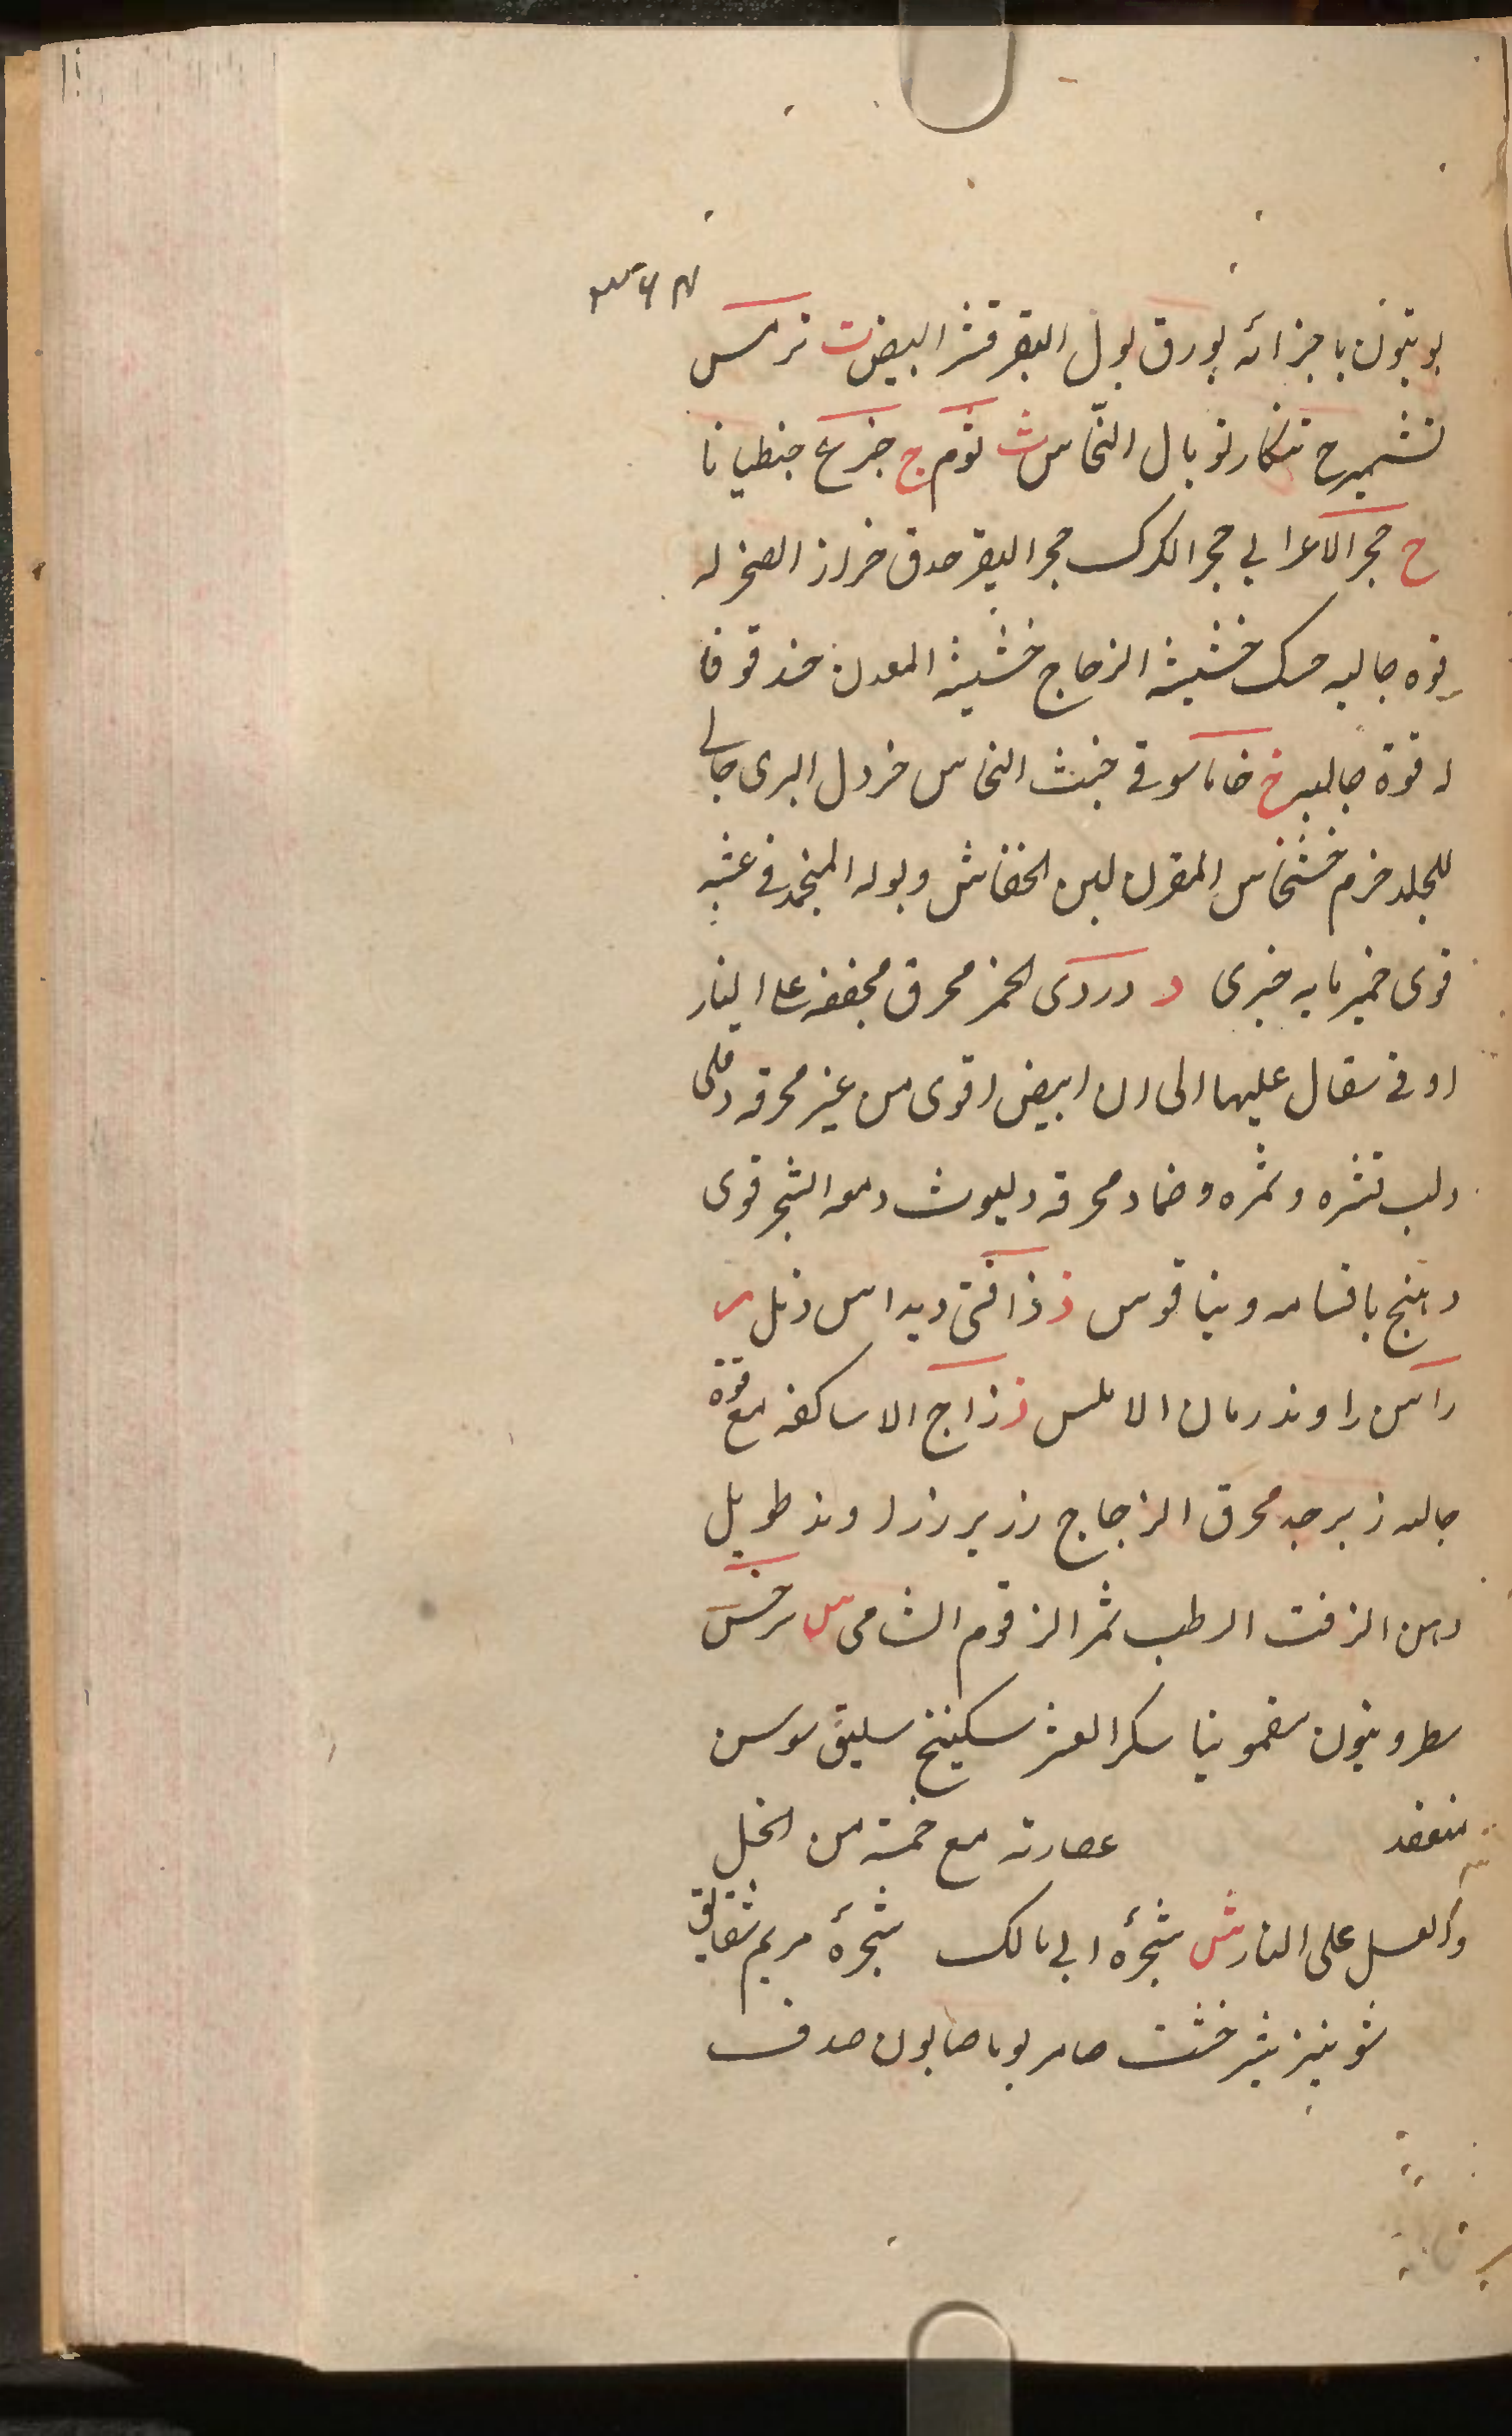 بوتيون باجزائه بورق بول البقر قشر البيض ت ترمس
تشميزج تنكار توبال النحّاس ث ثوم ج جزع جنطيانا
ح حجر الاعرابي حجر الكرك حجر البقر حدق خراز الصخر له
قوه جاليه حسك خشيشة الزجاج خشيشة المعدن حندقوقا
له قوة جاليه خ خاماسوقي خبث النحاس خردل البرى جالي
للجلد خرم خشخاش المقرن لبن الخفاش وبوله المنجمد في عشه
قوى خميرمايه خيرى د دردى الخمر محرق مجففه على النار
او في سفال عليها الى ان ابيض اقوى من غير محرقه دفلى
دلب قشره وثمره وضماد محرقه دلبوث دمعه الشجر قوى
دهنج باقسامه دينا قوس ذ ذافنى ديداس ذبل ر
راسن راوند رمان الاملس ز زاج الاساكفه مع قوة
جاليه زبرجد محرق الزجاج زرير زراوند طويل
دهن الزفت الرطب ثمر الزقوم الشامى س سرخس
سطرونيون سقمونيا سكر العشر سكبينج سليق سوسن
منعقد عصارته مع خمسة من الخل
والعسل على النار ش شجرة ابى مالك شجرة مريم شقايق
شونيز شيرخشت صامريوما صابون صدف